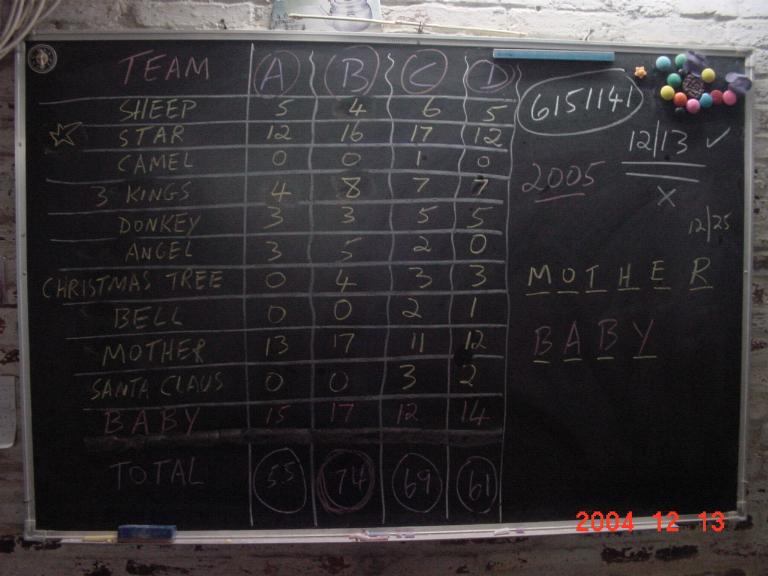 TEAM A B C D
SHEEP 5 4 6 5
STAR 12 16 17 12
CAMEL 0 0 1 0
3 KINGS 4 8 7 7
DONKEY 3 3 5 5
ANGEL 3 5 2 0
CHRISTMAS TREE 0 4 3 3
BELL 0 0 2 1
MOTHER 13 17 11 12
SANTA CLAUS 0 0 3 2
BABY 15 17 12 14
TOTAL 55 74 69 61
6151141
12/13 ✓
2005
x
12/25
MOTHER
BABY
2004 12 13